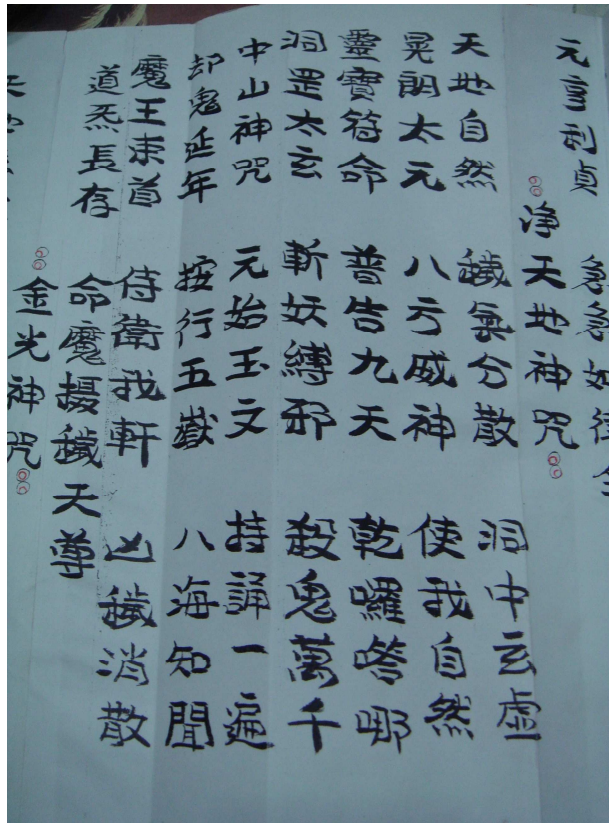 元亨利貞 急急如律令
净天地神咒
天地自然 穢炁分散 洞中玄虛
晃朗太元 八方威神 使我自然
靈寶符命 普告九天 乾囉嗒哪
洞罡太玄 斬妖縛邪 殺鬼萬千
中山神咒 元始玉文 持誦一遍
却鬼延年 按行五嶽 八海知聞
魔王束首 侍衛我軒 凶穢消散
道炁長存 命魔攝穢天尊
金光神咒
天地